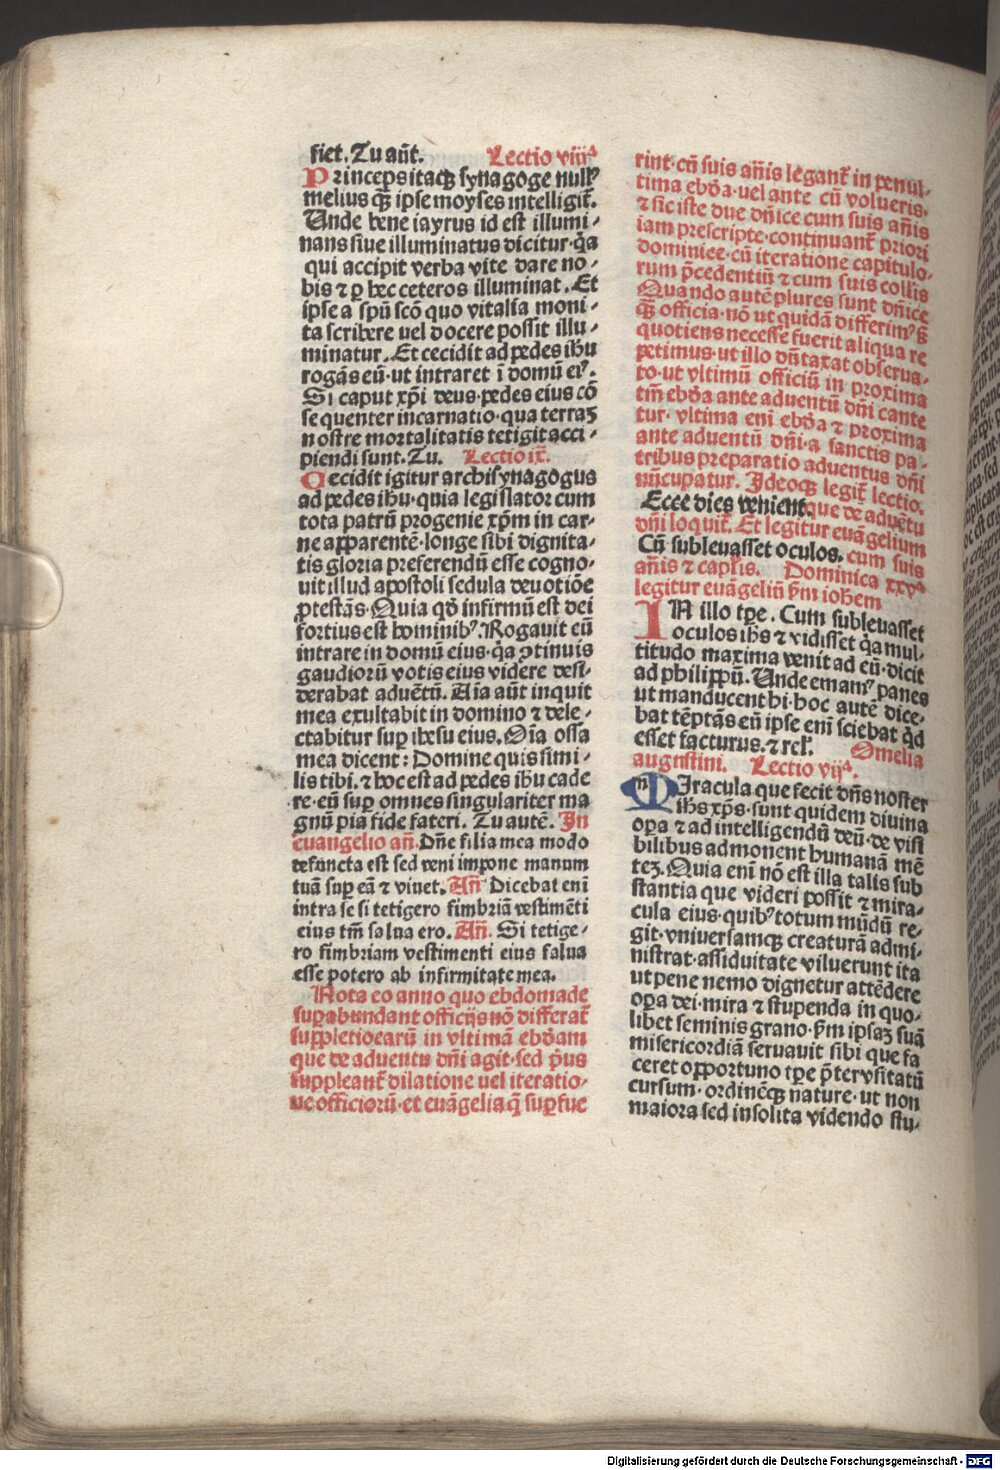 fiet. Tu aūt. Lectio viijª
Princeps itaqꝫ synagoge null⁹
melius qꝫ ipse moyses intelligit̄.
Unde bene iayrus id est illumi-
nans siue illuminatus dicitur·q̄a
qui accipit verba vite dare no-
bis ⁊ ꝑ hec ceteros illuminat. Et
ipse a spū scō quo vitalia moni-
ta scribere uel docere possit illu-
minatur. Et cecidit ad pedes ihu
rogās eū·ut intraret ī domū ei⁹.
Si caput xp̄i deus·pedes eius cō
sequenter incarnatio·qua terraꝫ
nostre mortalitatis tetigit acci-
piendi sunt. Tu. Lectio ix̄.
Cecidit igitur archisynagogus
ad pedes ihu·quia legislator cum
tota patrū progenie xp̄m in car-
ne apparentē·longe sibi dignita-
tis gloria preferendū esse cogno-
uit illud apostoli sedula deuotiōe
ꝓtestās·Quia qd̄ infirmū est dei
fortius est hominib⁹. Rogauit eū
intrare in domū eius·q̄a ꝓtinuis
gaudiorū votis eius videre desi-
derabat aduētū. Aīa aūt inquit
mea exultabit in domino ⁊ dele-
ctabitur suꝑ ihesu eius. Oīa ossa
mea dicent: Domine quis simi-
lis tibi. ⁊ hoc est ad pedes ihu cade
re·eū suꝑ omnes singulariter ma
gnū pia fide fateri. Tu autē. In
euangelio añ. Dñe filia mea modo
defuncta est sed veni impone manum
tuā suꝑ eā ⁊ viuet. Añ Dicebat enī
intra se si tetigero fimbriā vestimēti
eius tm̄ salua ero. Añ. Si tetige-
ro fimbriam vestimenti eius salua
esse potero ab infirmitate mea.
Nota eo anno quo ebdomade
suꝑabundant officijs nō differat̄
suppletio earū in vltimā ebdam
que de aduentu dn̄i agit·sed p̄us
suppleant̄ dilatione uel iteratio-
ne officiorū·et euāgelia q̄ suꝑfue
rint·cū suis añis legant̄ in penul-
tima ebda·uel ante cū volueris.
⁊ sic iste due dn̄ice cum suis añis
iam prescripte·continuant̄ priori
dominice·cū iteratione capitulo-
rum p̄cedentiū ⁊ cum suis collīs
Quando autē plures sunt dn̄ice
qꝫ officia·nō ut quidā differim⁹ s̄
quotiens necesse fuerit aliqua re
petimus·ut illo dūtaxat obserua-
to·ut vltimū officiū in proxima
tm̄ ebda ante aduentū dn̄i cante
tur· vltima enī ebda ⁊ proxima
ante aduentū dn̄i·a sanctis pa-
tribus preparatio aduentus dn̄i
nūcupatur. Ideoqꝫ legit̄ lectio.
Ecce dies venient. que de aduētu
dn̄i loquit̄. Et legitur euāgelium
Cū subleuasset oculos. cum suis
añis ⁊ capl̄is. Dominica xxvª
legitur euāgeliū s̄m iohem
IN illo tp̄e. Cum subleuasset
oculos ihs ⁊ vidisset q̄a mul-
titudo maxima venit ad eū·dicit
ad philippū. Unde emam⁹ panes
ut manducent hi·hoc autē dice-
bat tēptās eū ipse enī sciebat q̄d
esset facturus.⁊ rel̄. Omelia
augustini. Lectio vijª.
MIracula que fecit dn̄s noster
ihs xp̄s·sunt quidem diuina
oꝑa ⁊ ad intelligendū deū·de visi
bilibus admonent humanā mē
teꝫ. Quia enī nō est illa talis sub
stantia que videri possit ⁊ mira-
cula eius·quib⁹ totum mūdū re-
git·vniuersamqꝫ creaturā admi-
nistrat·assiduitate viluerunt ita
ut pene nemo dignetur attēdere
oꝑa dei·mira ⁊ stupenda in quo-
libet seminis grano·s̄m ipsaꝫ suā
misericordiā seruauit sibi que fa
ceret opportuno tp̄e p̄ter vsitatū
cursum·ordinēqꝫ nature·ut non
maiora sed insolita videndo stu-
Digitalisierung gefördert durch die Deutsche Forschungsgemeinschaft - DFG